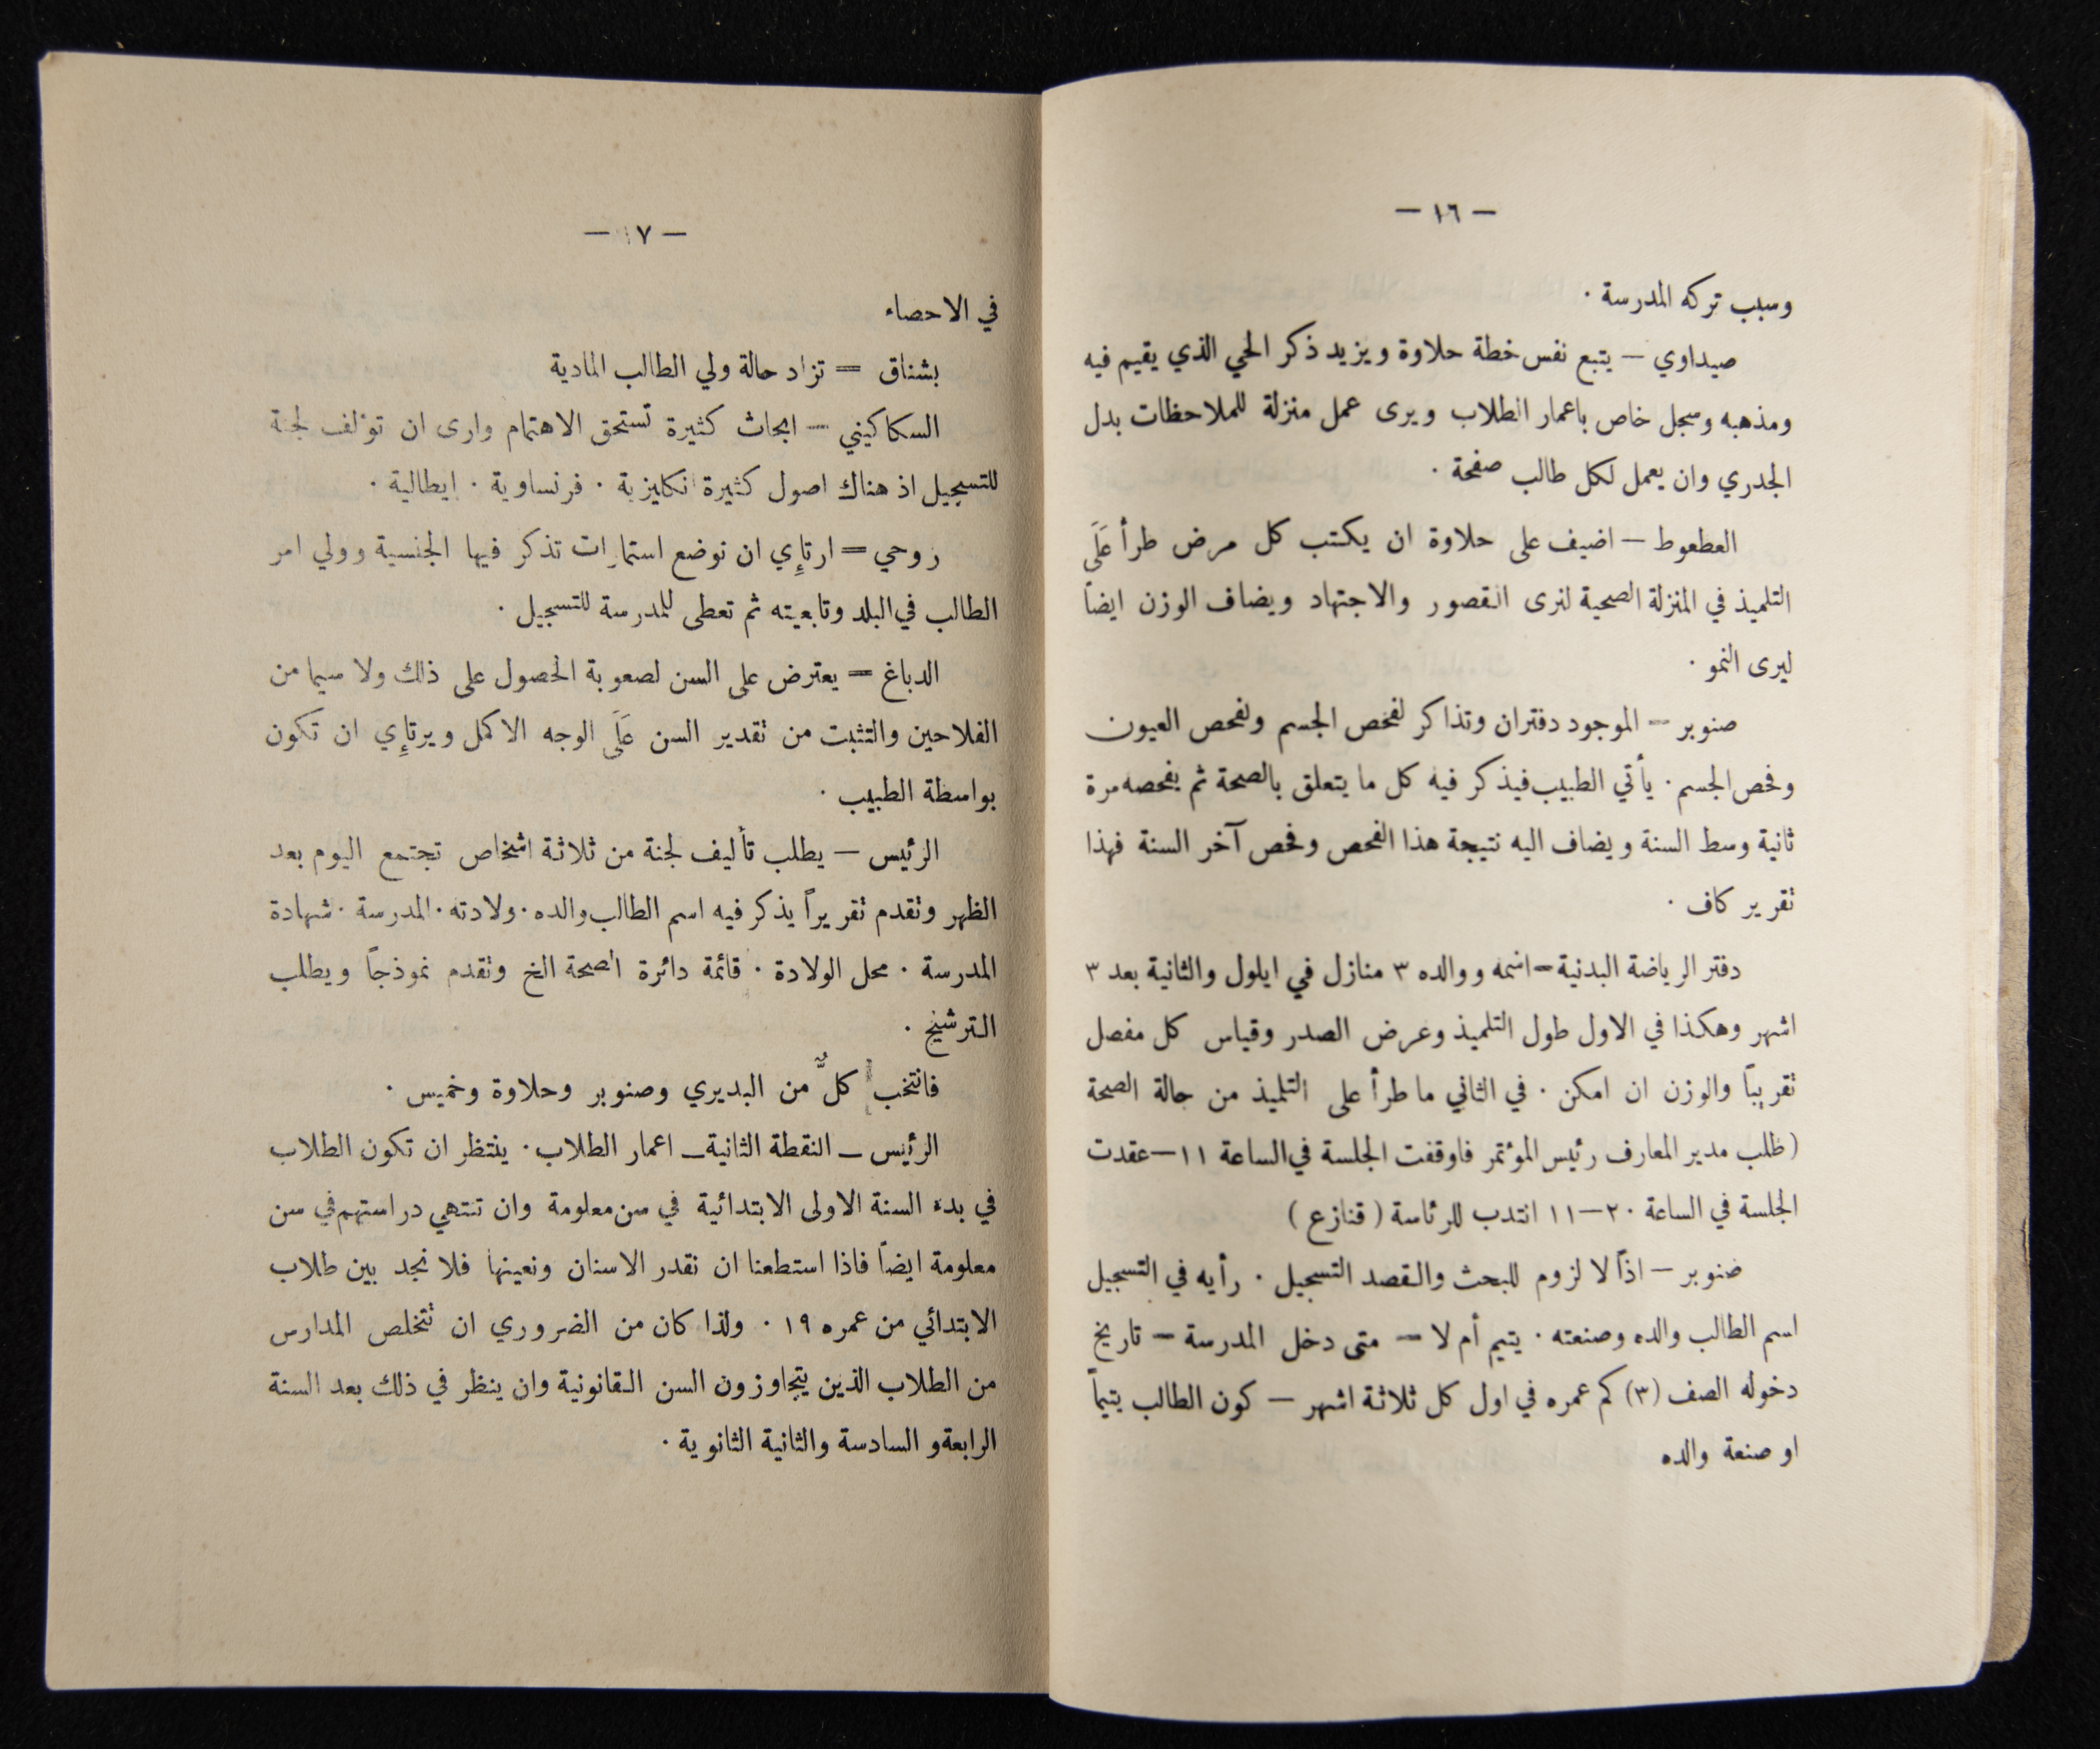 — ١٦ —
وسبب تركه المدرسة ·
صيداوي — يتبع نفس خطة حلاوة ويزيد ذكر الحي الذي يقيم فيه
ومذهبه وسجل خاص باعمار الطلاب ويرى عمل منزلة للملاحظات بدل
الجدري وان يعمل لكل طالب صفحة ·
العطعوط — اضيف على حلاوة ان يكتب كل مرض طرأ عَلَى
التلميذ في المنزلة الصحية لنرى القصور والاجتهاد ويضاف الوزن ايضاً
ليرى النمو ·
صنوبر — الموجود دفتران وتذاكر لفحص الجسم ولفحص العيون
وفحص الجسم · يأتي الطبيب فيذكر فيه كل ما يتعلق بالصحة ثم يفحصه مرة
ثانية وسط السنة ويضاف اليه نتيجة هذا الفحص وفحص آخر السنة فهذا
تقرير كاف ·
دفتر الرياضة البدنية — اسمه ووالده ٣ منازل في ايلول والثانية بعد ٣
اشهر وهكذا في الاول طول التلميذ وعرض الصدر وقياس كل مفصل
تقريباً والوزن ان امكن · في الثاني ما طرأ على التلميذ من حالة الصحة
(طلب مدير المعارف رئيس المؤتمر فاوقفت الجلسة في الساعة ١١ — عقدت
الجلسة في الساعة ٢٠ — ١١ انتدب للرئاسة ( قنازع )
صنوبر — اذاً لا لزوم للبحث والقصد التسجيل · رأيه في التسجيل
اسم الطالب والده وصنعته · يتيم أم لا — متى دخل المدرسة — تاريخ
دخوله الصف (٣) كم عمره في اول كل ثلاثة اشهر — كون الطالب يتيماً
او صنعة والده
— ١٧ —
في الاحصاء
بشناق = تزاد حالة ولي الطالب المادية
السكاكيني — ابحاث كثيرة تستحق الاهتمام وارى ان تؤلف لجنة
للتسجيل اذ هناك اصول كثيرة انكليزية · فرنساوية · ايطالية ·
روحي = ارتإي ان توضع استمارات تذكر فيها الجنسية وولي امر
الطالب في البلد وتابعيته ثم تعطى للمدرسة للتسجيل ·
الدباغ = يعترض على السن لصعوبة الحصول على ذلك ولا سيما من
الفلاحين والتثبت من تقدير السن عَلَى الوجه الاكمل ويرتإي ان تكون
بواسطة الطبيب ·
الرئيس — يطلب تأليف لجنة من ثلاثة اشخاص تجتمع اليوم بعد
الظهر وتقدم تقريراً يذكر فيه اسم الطالب والده · ولادته · المدرسة · شهادة
المدرسة · محل الولادة · قائمة دائرة الصحة الخ وتقدم نموذجاً ويطلب
الترشيح ·
فانتخب كلٌّ من البديري وصنوبر وحلاوة وخميس ·
الرئيس — النقطة الثانية — اعمار الطلاب · ينتظر ان تكون الطلاب
في بدء السنة الاولى الابتدائية في سن معلومة وان تنتهي دراستهم في سن
معلومة ايضاً فاذا استطعنا ان نقدر الاسنان ونعينها فلا نجد بين طلاب
الابتدائي من عمره ١٩ · ولذا كان من الضروري ان تتخلص المدارس
من الطلاب الذين يتجاوزون السن القانونية وان ينظر في ذلك بعد السنة
الرابعة و السادسة والثانية الثانوية ·